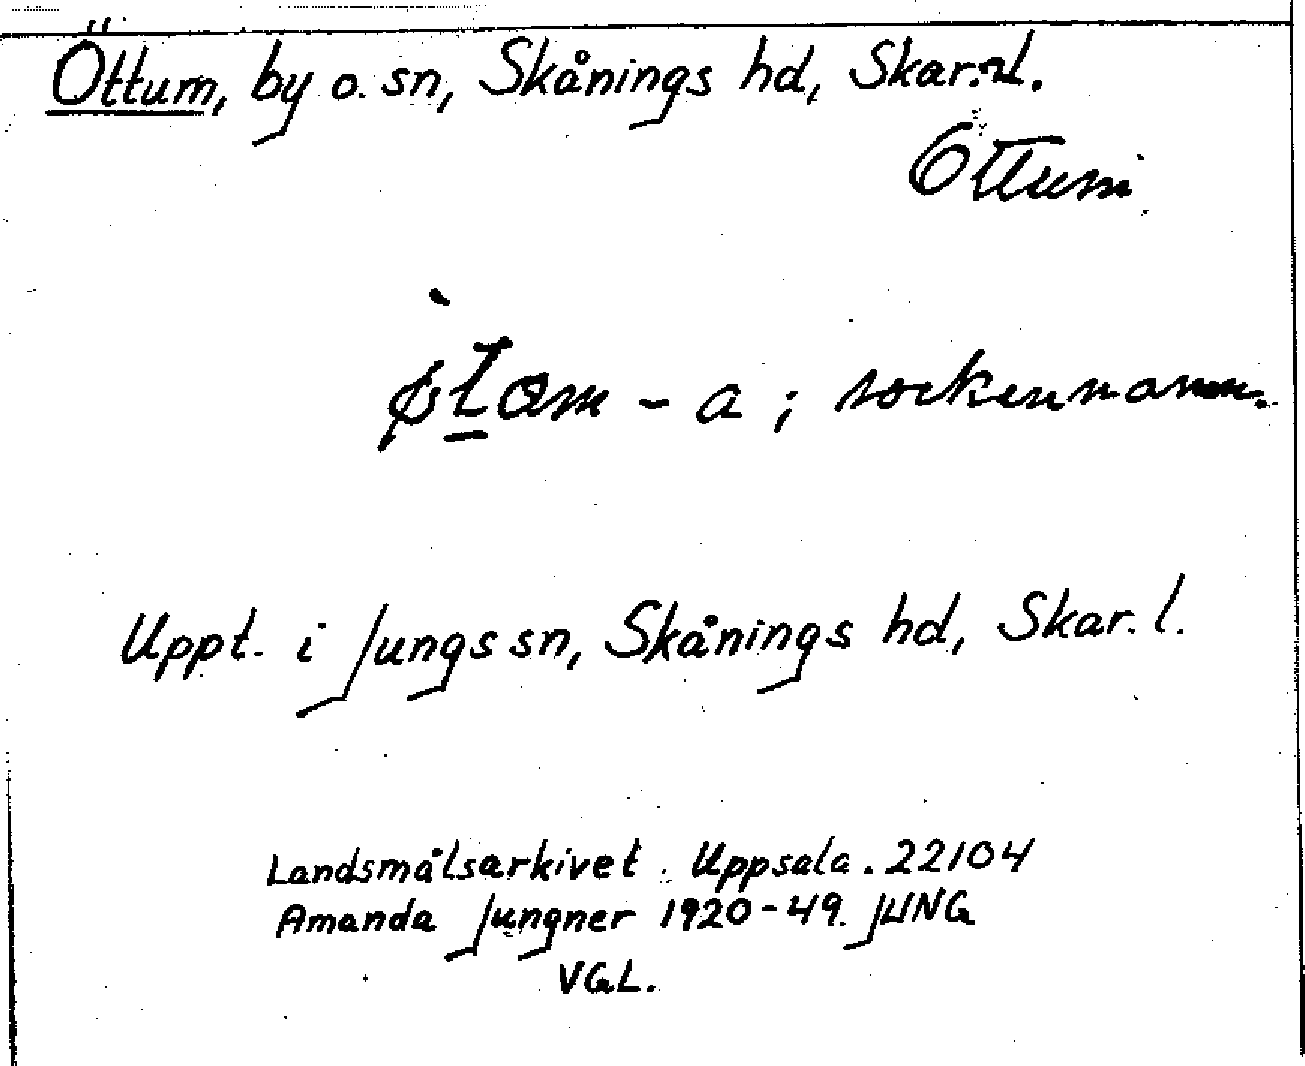 Öttum, by o. sn, Skånings hd, Skar. l.
Ottum
øtam - a ; sockennamn.
Uppt. i Jungs sn, Skånings hd, Skar. l.
Landsmålsarkivet. Uppsala. 22104
Amanda Jungner 1920-49. JUNG
VGL.